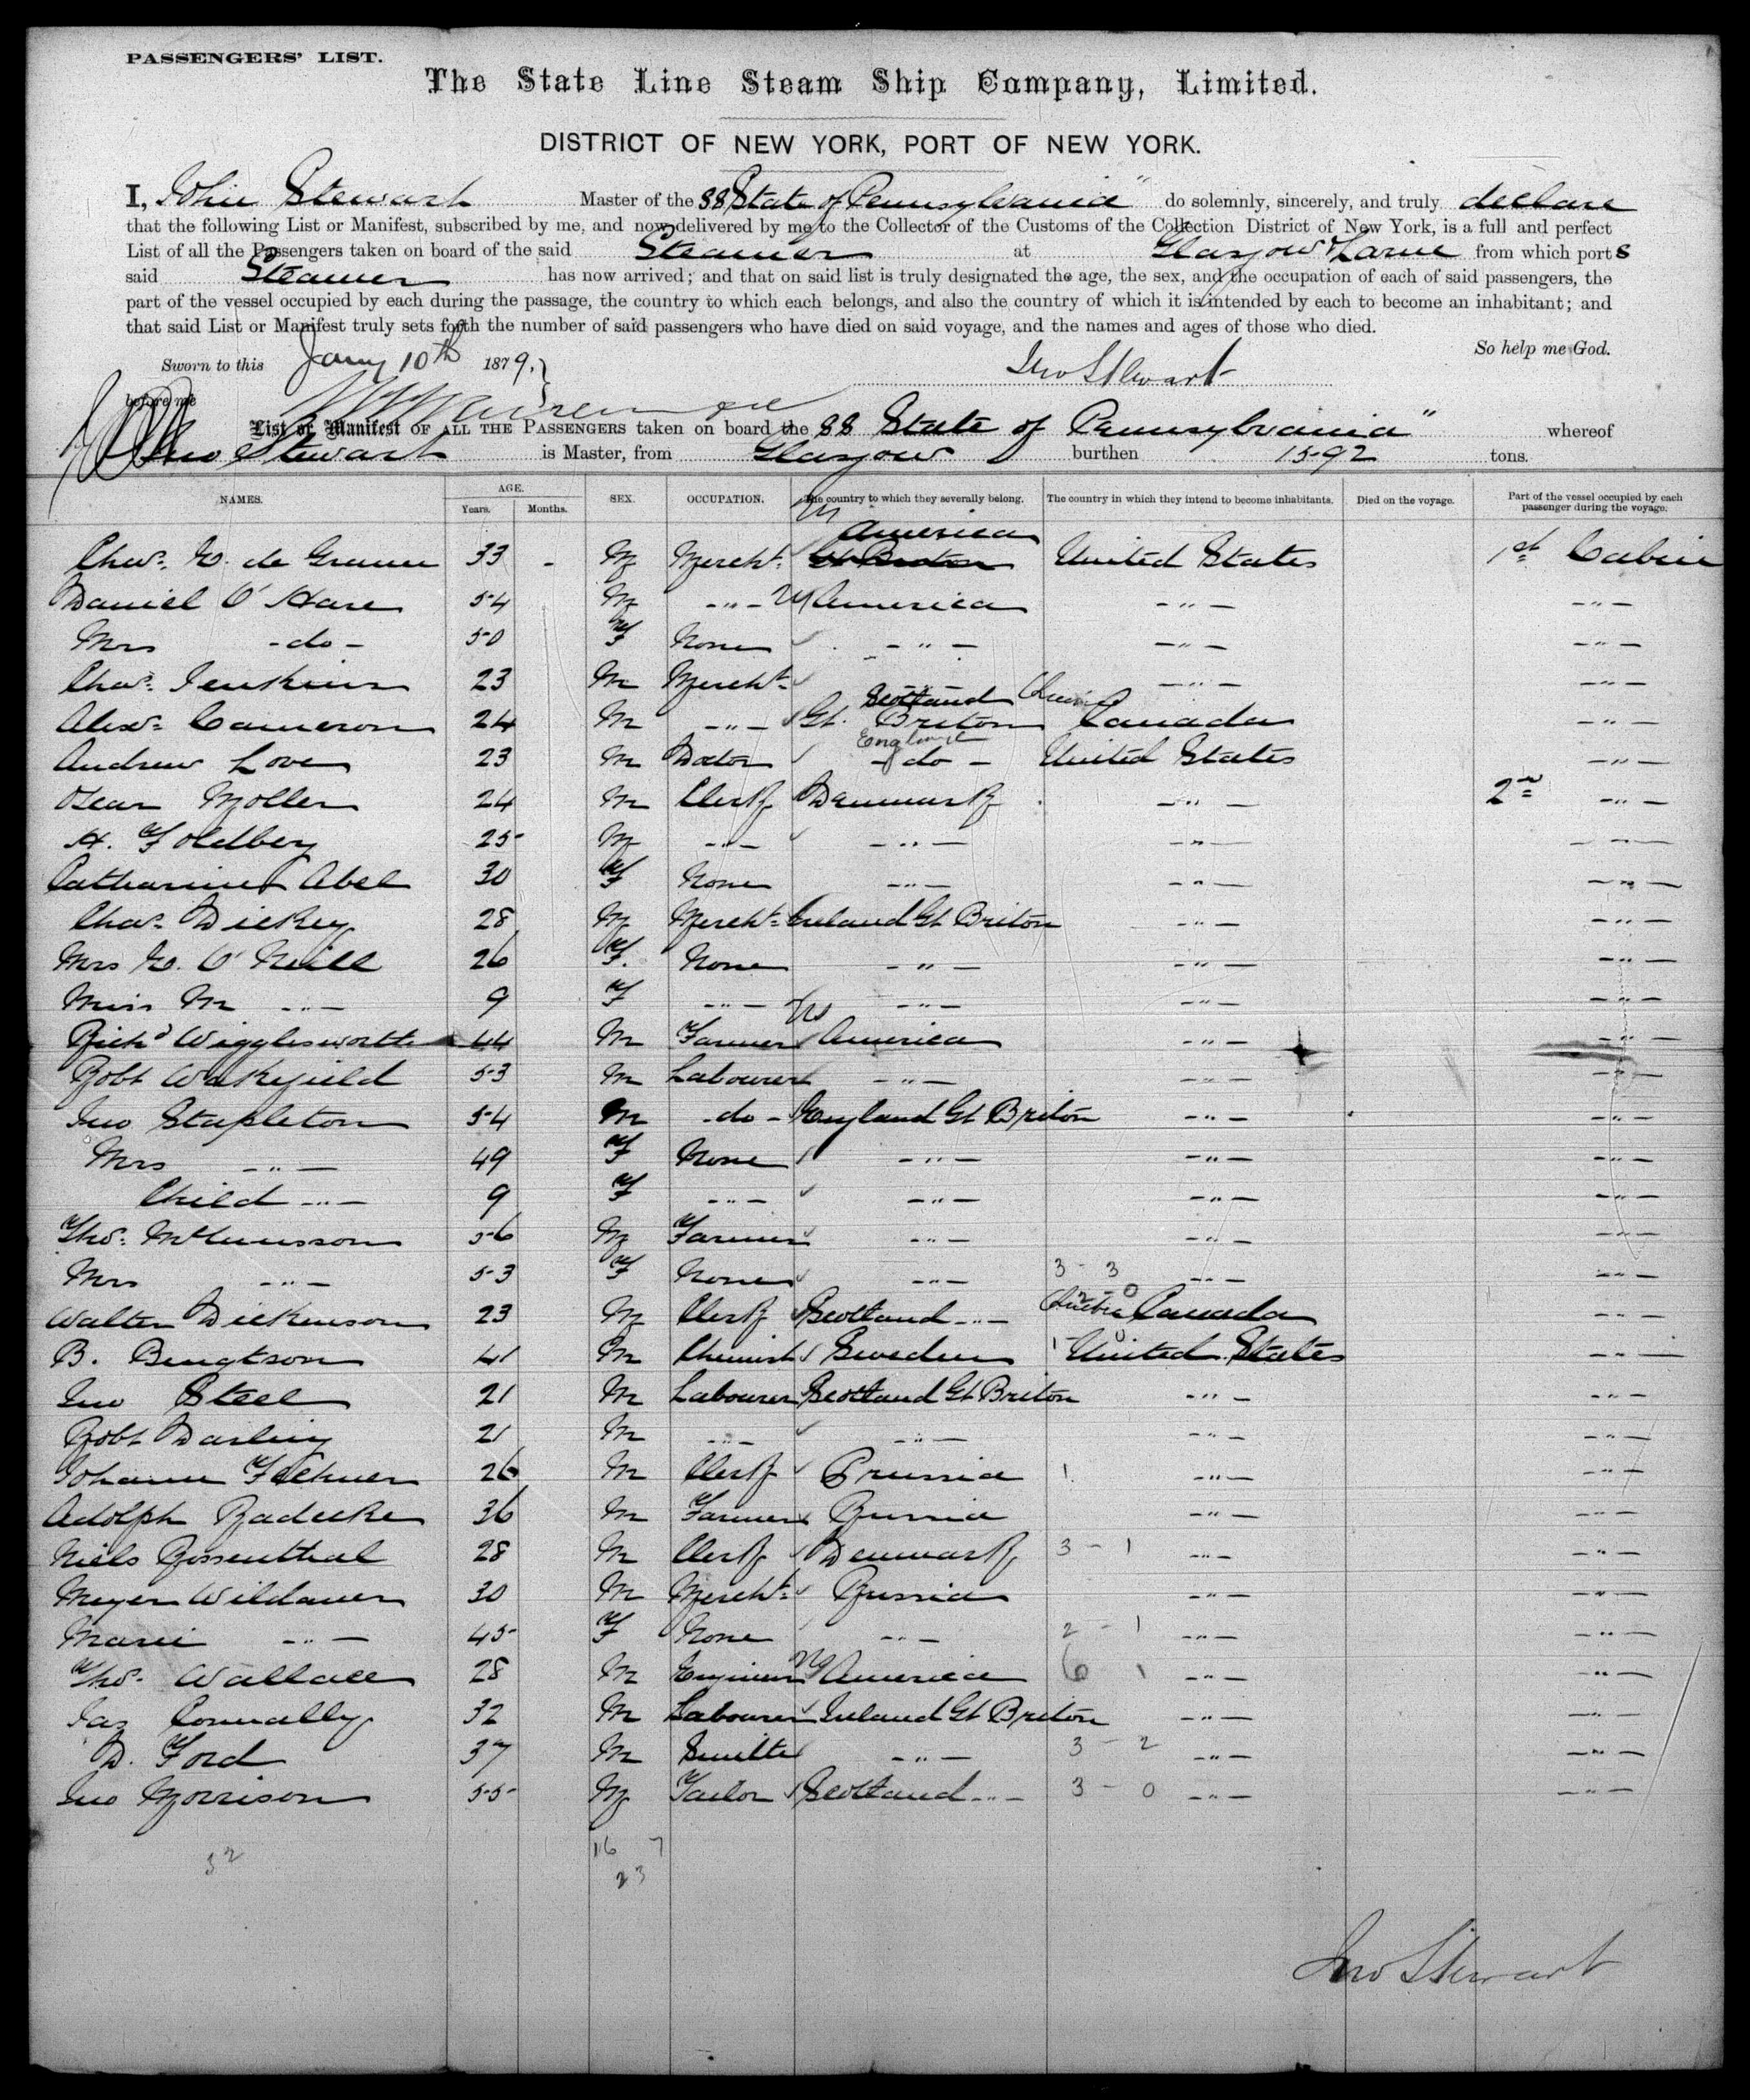 PASSENGERS' LIST.
The State Line Steam Ship Company, Limited.
DISTRICT OF NEW YORK, PORT OF NEW YORK.
I, John Stewart Master of the SS "State of Pennsylvania" do solemnly, sincerely, and truly declare
that the following List or Manifest, subscribed by me, and now delivered by me to the Collector of the Customs of the Collection District of New York, is a full and perfect
List of all the Passengers taken on board of the said Steamer at Glasgow & Larne from which ports
said Steamer has now arrived; and that on said list is truly designated the age, the sex, and the occupation of each of said passengers, the
part of the vessel occupied by each during the passage, the country to which each belongs, and also the country of which it is intended by each to become an inhabitant; and
that said List or Manifest truly sets forth the number of said passengers who have died on said voyage, and the names and ages of those who died.
So help me God.
Sworn to this Jany 10th 1879, Jno Stewart
before me
List or Manifest OF ALL THE PASSENGERS taken on board the SS State of Pennsylvania" whereof
Jno Stewart is Master, from Glasgow burthen 1592 tons.
NAMES. AGE. Years. Months. SEX. OCCUPATION. The country to which they severally belong. The country in which they intend to become inhabitants. Died on the voyage. Part of the vessel occupied by each passenger during the voyage.
America
Chas. de 33 - M Mercht. Gt Briton United States 1st Cabin
Daniel O'Hare 54 M -"- America -"- -"-
Mrs -do- 50 F None -"- -"- -"-
Chas. Jenkins 23 M Mercht. -"- -"- -"-
Scotland
Alexr. Cameron 24 M -"- Gt. Briton Canada -"-
England
Andrew Love 23 M Doctor -do- United States -"-
Oscar Moller 24 M Clerk Denmark -"- 2nd -"-
H. Foldberg 25 M -"- -"- -"- -"-
Catharine Abel 30 F None -"- -"- -"-
Chas. Dickey 28 M Mercht. Ireland Gt Briton -"- -"-
Mrs O'Neill 26 F. None -"- -"- -"-
Miss M -"- 9 F -"- -"- -"- -"-
Richd Wigglesworth 44 M Farmer America -"- -"-
Robt Wakefield 53 M Labourer -"- -"- -"-
Jno Stapleton 54 M -do- England Gt Briton -"- -"-
Mrs -"- 49 F None -"- -"- -"-
Child -"- 9 F -"- -"- -"- -"-
Thos. 56 M Farmer -"- -"- -"-
Mrs -"- 53 F None -"- 3 - 3 -"- -"-
Walter Dickenson 23 M Clerk Scotland -"- Quebec Canada -"-
B. Bengtson 41 M Chemist Sweden United States -"-
Jno Steel 21 M Labourer Scotland Gt Briton -"- -"-
Robt Darling 21 M -"- -"- -"- -"-
Johann 26 M Clerk Prussia -"- -"-
Adolph Radecke 36 M Farmer Russia -"- -"-
Niels Rossenthal 28 M Clerk Denmark 3 - 1 -"- -"-
Meyer Wildauer 30 M Mercht. Russia -"- -"-
Marie -"- 45 F None -"- 2 - 1 -"- -"-
Thos. Wallace 28 M Engineer America 6 1 -"- -"-
Jas Connally 32 M Labourer Ireland Gt Briton -"- -"-
D. Ford 37 M Smith -"- 3 - 2 -"- -"-
Jno Morrison 55 M Tailor Scotland -"- 3 - 0 -"- -"-
32 16 7
23
Jno Stewart